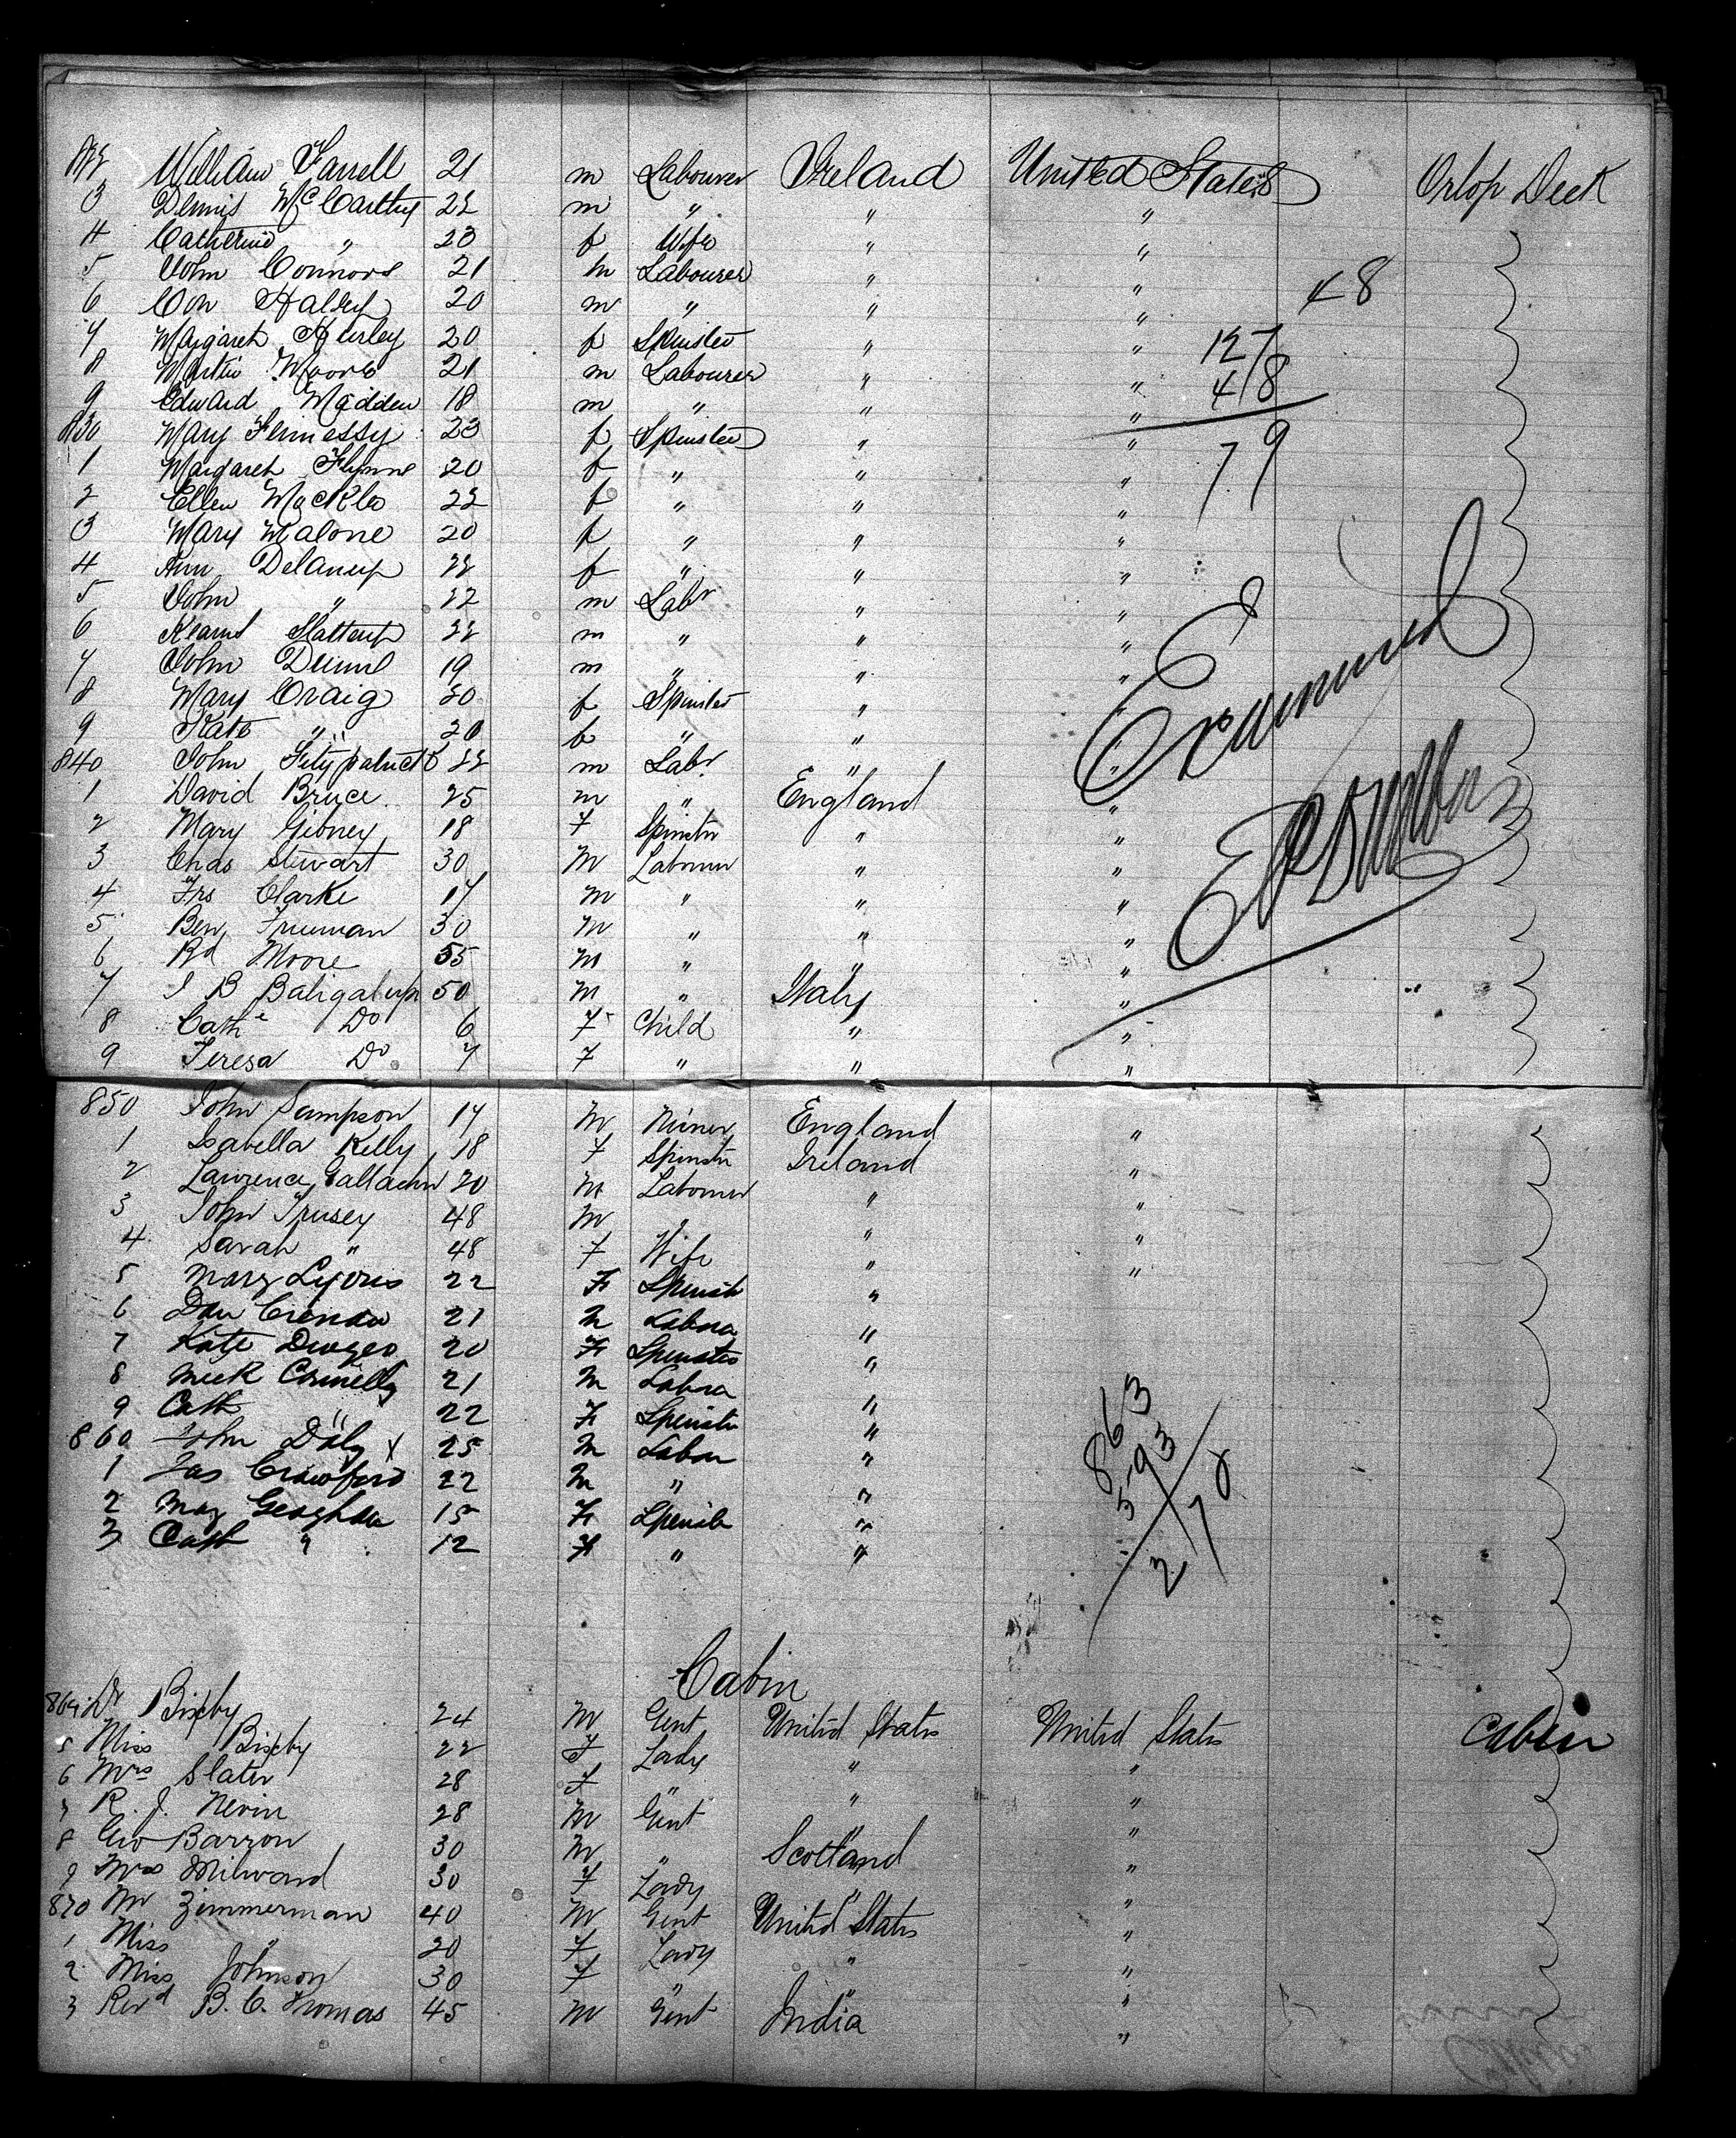 822 William Farrell 21 m Labourer Ireland United States Orlop Deck
3 Dennis McCarthy 22 m " " "
4 Catherine " 23 f Wife " "
5 John Connors 21 m Labourer " " 48
6 Con Halsey 20 m " " "
7 Margaret Hurley 20 f Spinster " " 127
8 Martin Moore 21 m Labourer " " 48
9 Edward Madden 18 m " " "
830 Mary Fennessy 23 f Spinster " " 79
1 Margaret Flynne 20 f " " "
2 Ellen 22 f " " "
3 Mary Malone 20 f " " "
4 Ann Delaney 22 f " " "
5 John " 22 m Labr " "
6 Slattery 22 m " " " Examined
7 John 19 m " " "
8 Mary Craig 20 f Spinster " "
9 Kate " 20 f " " "
840 John 22 m Labr " "
1 David Bruce 25 m " England "
2 Mary Gibney 18 F Spinstr " "
3 Chas Stewart 30 M Labourer " "
4 Frs Clarke 17 M " " "
5 Ben Freeman 30 M " " "
6 Rd Moore 55 M " " "
7 J B 50 M " Italy "
8 Cathe Do 6 F Child " "
9 Teresa Do 7 F " " "
850 John Sampson 17 M Miner England "
1 Isabella Kelly 18 F Spinstr Ireland "
2 Lawrence Gallacher 20 M Labourer " "
3 John Trusey 48 M " " "
4 Sarah " 48 F Wife " "
5 Mary Lyons 22 F Spinstr "
6 Dan Crenan 21 M Labour "
7 Kate 20 F Spinster "
8 Mick Connelly 21 M Labour "
9 Cath " 22 F Spinster " 863
860 John Daly x 25 M Labour " 593
1 Jas Crawford 22 M " " 270
2 Mary Geoghan 15 F Spinstr "
3 Cath " 12 F " "
Cabin
864 Dr Bixby 24 M Gent United States United States Cabin
5 Miss Bixby 22 F Lady " "
6 Mrs Slater 28 F " " "
7 R. J. Nevin 28 M Gent " "
8 Geo Barron 30 M " Scotland "
9 Mrs Milward 30 F Lady " "
870 Mr Zimmerman 40 M Gent United States "
1 Miss " 20 F Lady " "
2 Miss Johnson 30 F " " "
3 Revd B. C. Thomas 45 M Gent India "